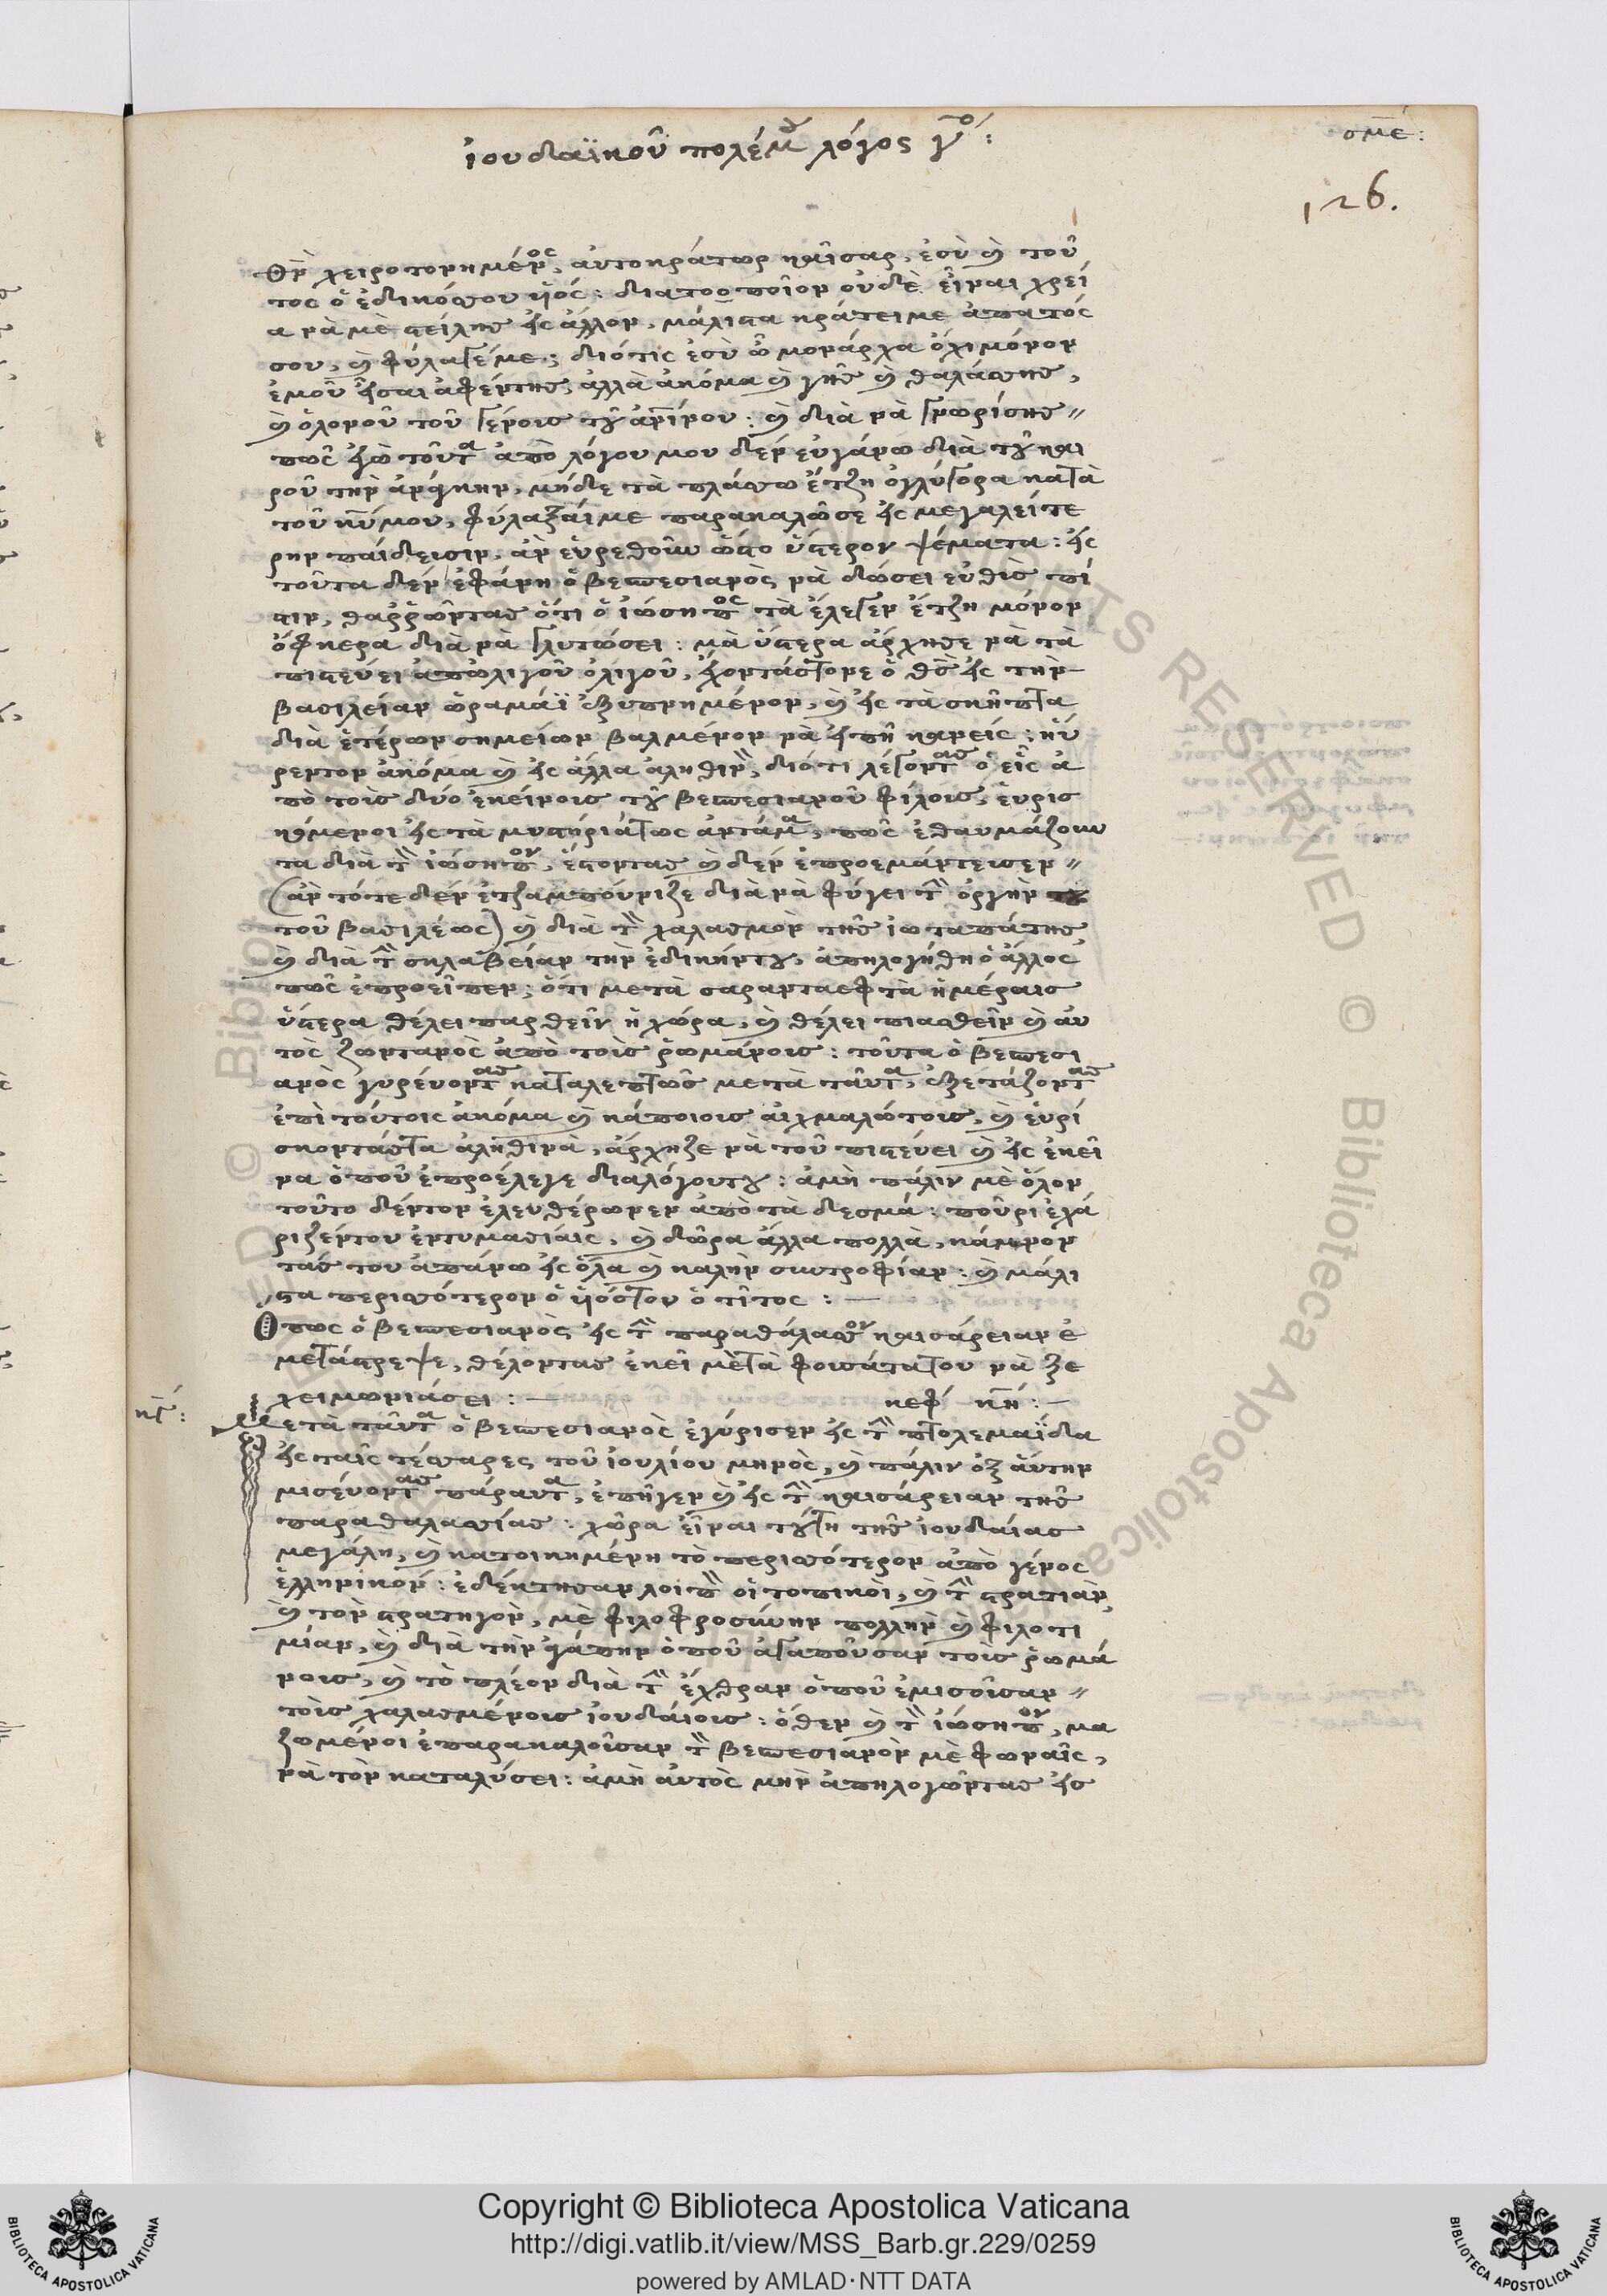 ἰουδαϊκοῦ πολέμου λόγος γος:
σμε:
126.
θεν χειροτονημένος, αὐτοκράτωρ καῖσαρ, ἐσὺ καὶ τοῦ
τος ὁ ἐδικόσου ὑϊός: διατοοποῖον οὐδὲ εἶναι χρεί
α νὰ μὲ στείλης εἰς ἄλλον, μάλιστα κράτειμε ἀπατός
σου, καὶ φύλαγέμε; διότις ἐσὺ ὦ μονάρχα ὄχι μόνον
ἐμοῦ εἶσαι ἀφέντης, ἀλλὰ ἀκόμα καὶ γῆς καὶ θαλάσσης,
καὶ ὁλονοῦ τοῦ γένους τοῦ ἀνθρωπίνου: καὶ διὰ νὰ γνωρίσης
πῶς ἐγὼ τοῦτα ἀπὸ λόγου μου δὲν εὐγάνω διὰ τοῦ και
ροῦ τὴν ἀνάγκην, μήδε τὰ πλάσσω ἔτζη ὀγλύγορα κατὰ
τοῦ κυρίου μου, φύλαξαίμε παρακαλῶσε εἰς μεγαλείτε
ρην παίδευσιν, ἂν εὑρεθοῦν ὥστο ὕστερον ψέματα: εἰς
τοῦτα δὲν ἐφάνη ὁ βεσπεσιανὸς νὰ δώσει εὐθὺς πί
στιν, θαρρῶντας ὅτι ὁ ἰώσηπος τὰ ἔλεγεν ἔτζη μόνον
ὄφκερα διὰ νὰ γλυτώσει: μὰ ὕστερα ἄρχησε νὰ τὰ
πιστεύει ἀπωλιγοῦ ὀλιγοῦ, ἔχοντάστονε ὁ θεὸς εἰς τὴν
βασιλείαν ὡραμάϊ ἐξυπνημένον, καὶ εἰς τὰ σκῆπτρα
διὰ ἑτέρων σημείων βαλμένον νὰ εἰπῆ κανείς: ηὕ
ρεντον ἀκόμα καὶ εἰς ἄλλα ἀληθινὸν, διότι λέγοντας ὁ εἷς ἀ
πὸ τοὺς δύο ἐκείνους τοῦ βεσπεσιανοῦ φίλους, εὑρισ
κόμενοι εἰς τὰ μυστήριάτως ἀντάμα, πῶς ἐθαύμαζουν
τα διὰ τὸν ἰώσηπον, ἔστοντας καὶ δὲν ἐπροεμάντευσεν
(ἂν τότε δὲν ἐτζαμπούνιζε διὰ νὰ φύγει τὴν ὀργὴν
τοῦ βασιλέως) καὶ διὰ τὸν χαλασμὸν τῆς ἰωταπάτης
καὶ διὰ τὴν σκλαβείαν τὴν ἐδικήντου, ἀπηλογήθη ὁ ἄλλος
πῶς ἐπροεῖπεν; ὅτι μετὰ σαρανταεφτὰ ἡμέραις
ὕστερα θέλει παρθεῖν ἡ χώρα, καὶ θέλει πιασθεῖν καὶ αὐ
τὸς ζωντανὸς ἀπὸ τοὺς ῥωμάνους: τοῦτα ὁ βεσπεσι
ανὸς γυρεύοντας καταλεπτῶς μετὰ ταῦτα, ἐξετάζοντας
ἐπὶ τούτοις ἀκόμα καὶ κάποιους αἰχμαλώτους, καὶ εὑρί
σκοντάστα ἀληθινὰ, ἄρχηζε νὰ τοῦ πιστεύει καὶ εἰς ἐκεῖ
να ὁποῦ ἐπροέλεγε διαλόγουτου: ἀμὴ πάλιν μὲ ὅλον
τοῦτο δέντον ἐλευθέρωνεν ἀπὸ τὰ δεσμά: ποῦρι ἐχά
ριζέντου ἐντυμασίαις, καὶ δῶρα ἄλλα πολλὰ, κάμνον
τας του ἀπάνω εἰς ὅλα καὶ καλὴν συντροφίαν: καὶ μάλι
στα περισσότερον ὁ ὑϊόστου ὁ τῖτος:
Ὅπως ὁ βεσπεσιανὸς εἰς τὴν παραθάλασσον καισάρειαν ἐ
μετάστρεψε, θέλοντας ἐκεῖ μὲτὰ φουσάτατου νὰ ξε
χειμωνιάσει: κεφ κη:
κγ:
Μετὰ ταῦτα ὁ βεσπεσιανὸς ἐγύρισεν εἰς τὴν πτολεμαΐδα
εἰς ταῖς τέσσαρες τοῦ ἰουλίου μηνὸς, καὶ πάλιν ὀξ αὕτην
μισεύοντας πάραυτα, ἐπῆγεν καὶ εἰς τὴν καισάρειαν τῆς
παραθαλασσίας: χῶρα εἶναι τούτη τῆς ἰουδαίας
μεγάλη, καὶ κατοικημένη τὸ περισσότερον ἀπὸ γένος
ἑλληνικόν: ἐδέκτησαν λοιπὸν οἱ τοπικοὶ, καὶ τὴν στρατιὰν
καὶ τὸν στρατηγὸν, μὲ φιλοφροσύνην πολλὴν καὶ φιλοτι
μίαν, καὶ διὰ τὴν ἀγάπην ὁποῦ ἀγαποῦσαν τοὺς ῥωμά
νους, καὶ τὸ πλέον διὰ τὴν ἔχθραν ὁποῦ ἐμισοῦσαν
τοὺς χαλασμένους ἰουδαίους: ὅθεν καὶ τὸν ἰώσηπον, μα
ζωμένοι ἐπαρακαλοῦσαν τὸν βεσπεσιανὸν μὲ φωναῖς,
νὰ τὸν καταλύσει: ἀμὴ αὐτὸς μὴν ἀπηλογῶντας εἰς
Copyright © Biblioteca Apostolica Vaticana
http://digi.vatlib.it/view/MSS_Barb.gr.229/0259
powered by AMLAD·NTT DATA
BIBLIOTECA APOSTOLICA VATICANA
BIBLIOTECA APOSTOLICA VATICANA